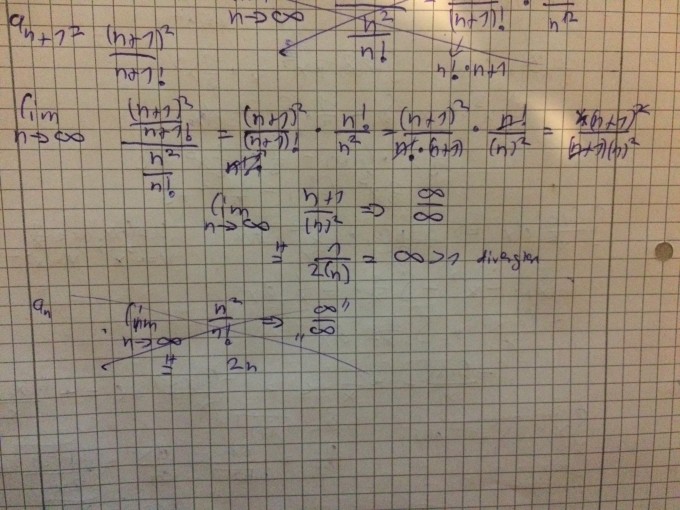 lim n→∞ n²/n! (n+1)! ·
a_{n+1} = (n+1)²/n+1! n!·n+1
lim n→∞ ((n+1)²/n+1!)/(n²/n!) = (n+1)²/(n+1)! · n!/n² = (n+1)²/n!·(n+1) · n!/(n)² = (n+1)²/(n+1)(n)²
lim n→∞ n+1/(n)² ⇒ ∞/∞
H= 1/2(n) = ∞ > 1 divergiert
a_n lim n→∞ n²/n! ⇒ "∞/∞"
H= 2n